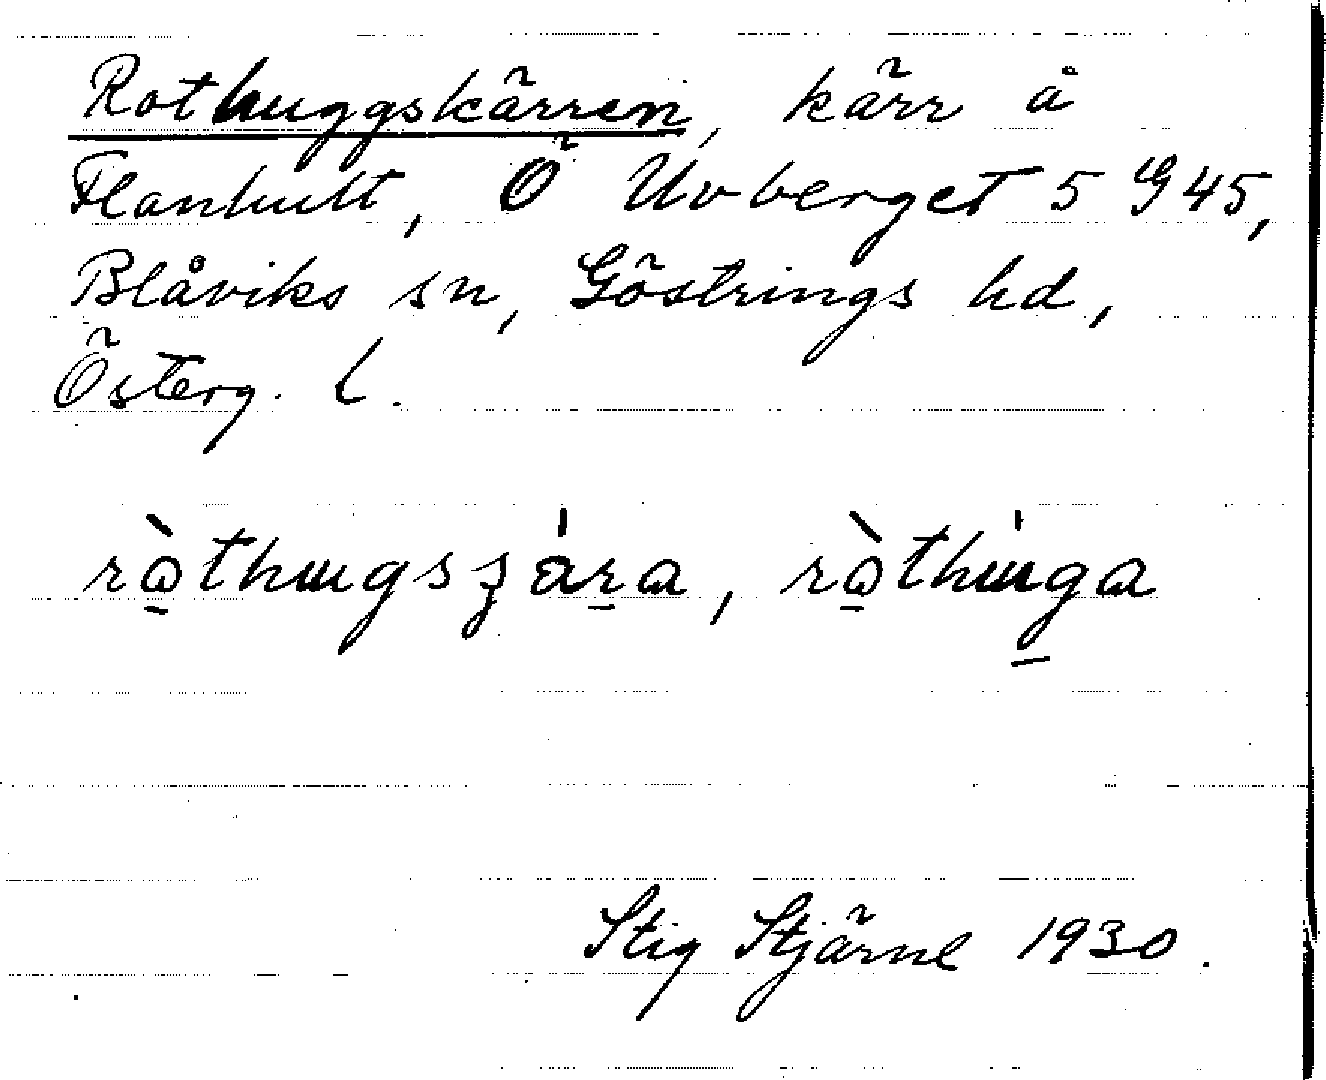 Rothuggskärren, kärr å
Flanhult, Ö Uvberget 5 G 45,
Blåviks sn, Göstrings hd,
Österg. l.
rⱺ̀thɯgsʒára, rⱺ̀thɯ́ga
Stig Stjärne 1930.